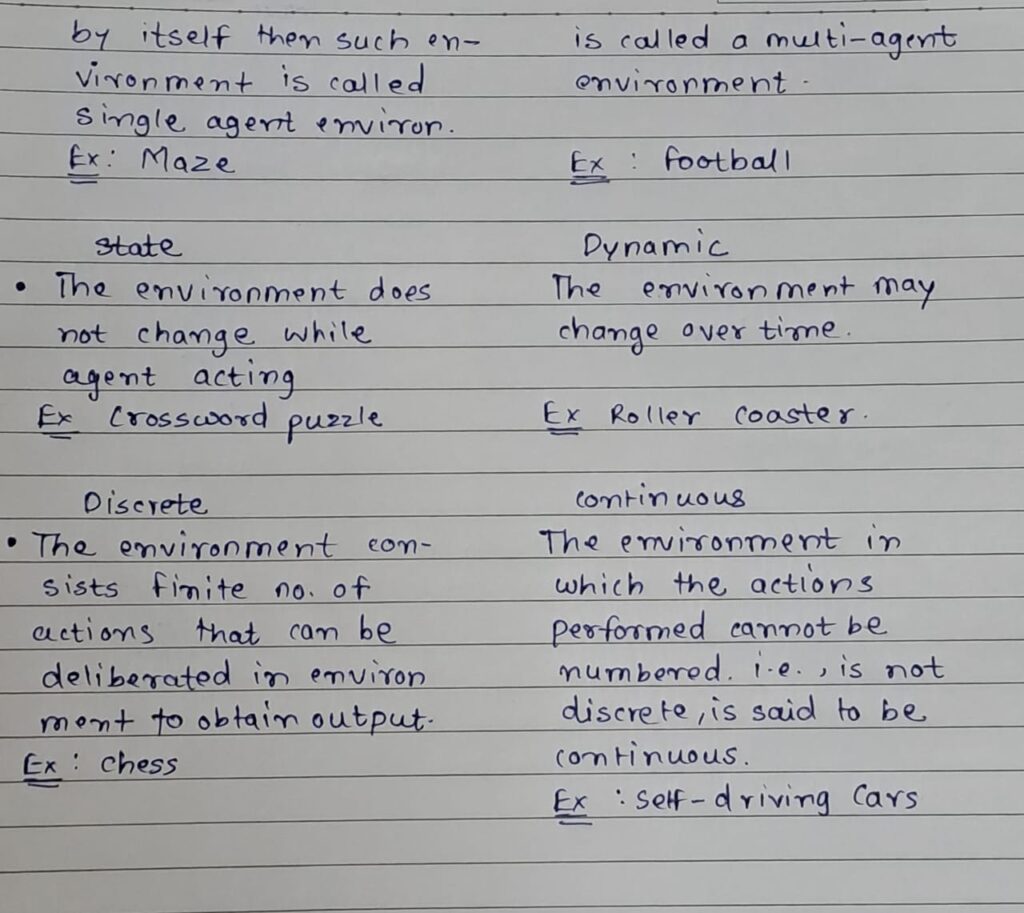 by itself then such en-
vironment is called
single agent environ.
Ex: Maze
is called a multi-agent
environment.
Ex : football
state
• The environment does
not change while
agent acting
Ex Crossword puzzle
Dynamic
The environment may
change over time.
Ex Roller coaster.
Discrete
• The environment con-
sists finite no. of
actions that can be
deliberated in environ
ment to obtain output.
Ex : chess
continuous
The environment in
which the actions
performed cannot be
numbered. i.e., is not
discrete, is said to be
continuous.
Ex : self-driving Cars